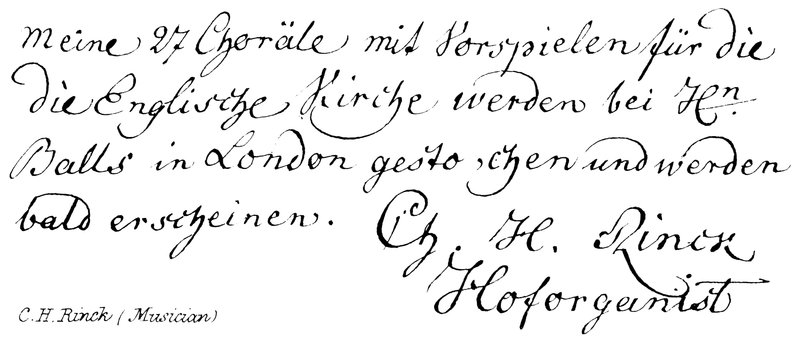 Meine 27 Choräle mit Vorspielen für die
die Englische Kirche werden bei Hn.
Balls in London gestochen und werden
bald erscheinen.
Ch. H. Rinck
Hoforganist
C. H. Rinck (Musician)